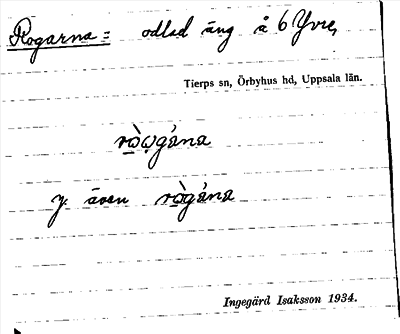 Rogarna = odlad äng å 6 Yvre,
Tierps sn, Örbyhus hd, Uppsala län.
rò̱ωgána
y. även rò̱gána
Ingegärd Isaksson 1934.